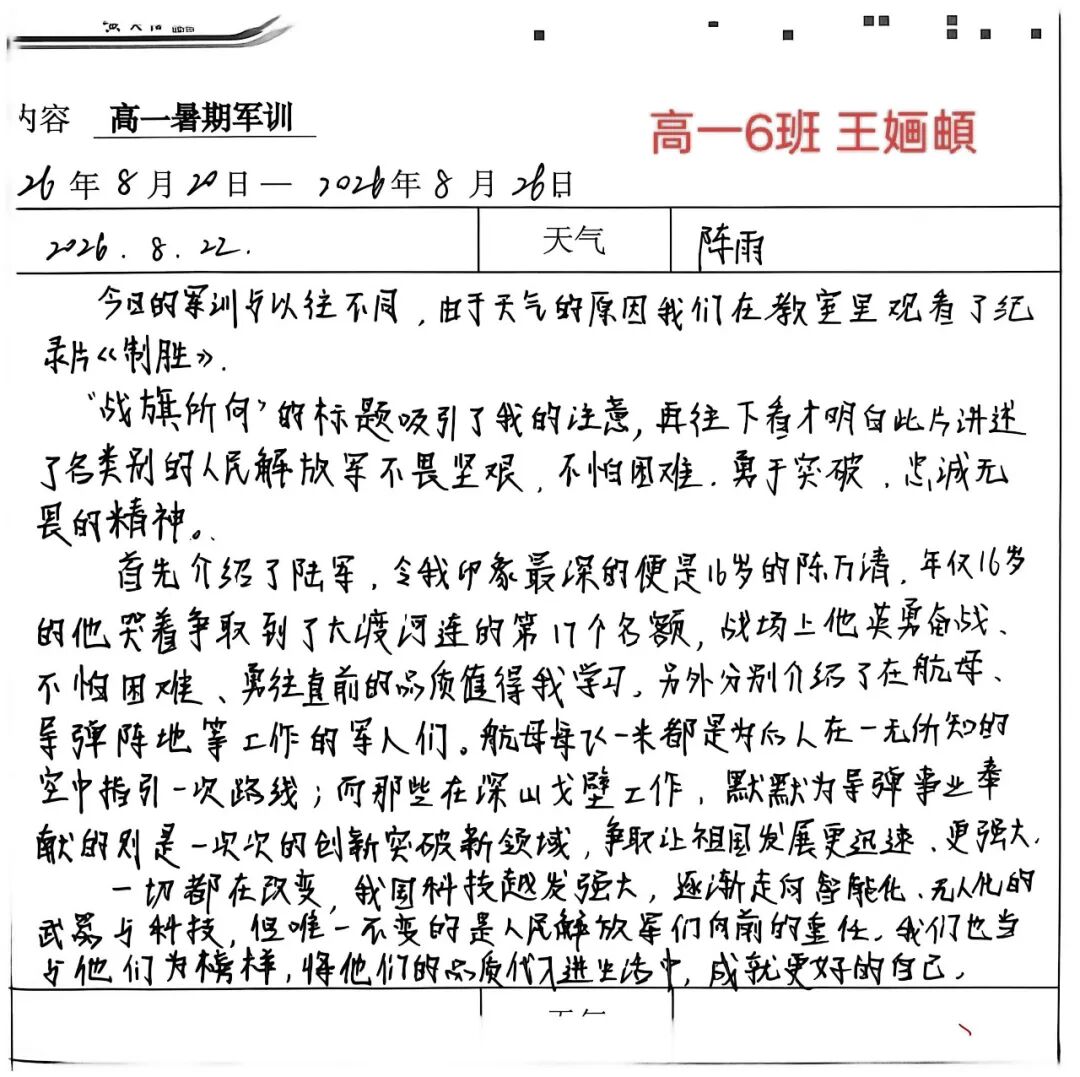 内容 高一暑期军训
高一6班 王婳頔
26年8月20日— 2026年8月26日
2026.8.22. 天气 阵雨
今日的军训与以往不同,由于天气的原因我们在教室里观看了纪
录片《制胜》.
"战旗所向"的标题吸引了我的注意,再往下看才明白此片讲述
了各类别的人民解放军不畏坚艰、不怕困难、勇于突破、忠诚无
畏的精神。
首先介绍了陆军,令我印象最深的便是16岁的陈万清,年仅16岁
的他哭着争取到了大渡河连的第17个名额,战场上他英勇奋战、
不怕困难、勇往直前的品质值得我学习。另外分别介绍了在航母、
导弹阵地等工作的军人们。航母每飞一米都是为后人在一无所知的
空中指引一次路线;而那些在深山戈壁工作,默默为导弹事业奉
献的则是一次次的创新突破新领域,争取让祖国发展更迅速、更强大.
一切都在改变,我国科技越发强大,逐渐走向智能化、无人化的
武器与科技,但唯一不变的是人民解放军们向前的重任。我们也当
与他们为榜样,将他们的品质代入进生活中,成就更好的自己.